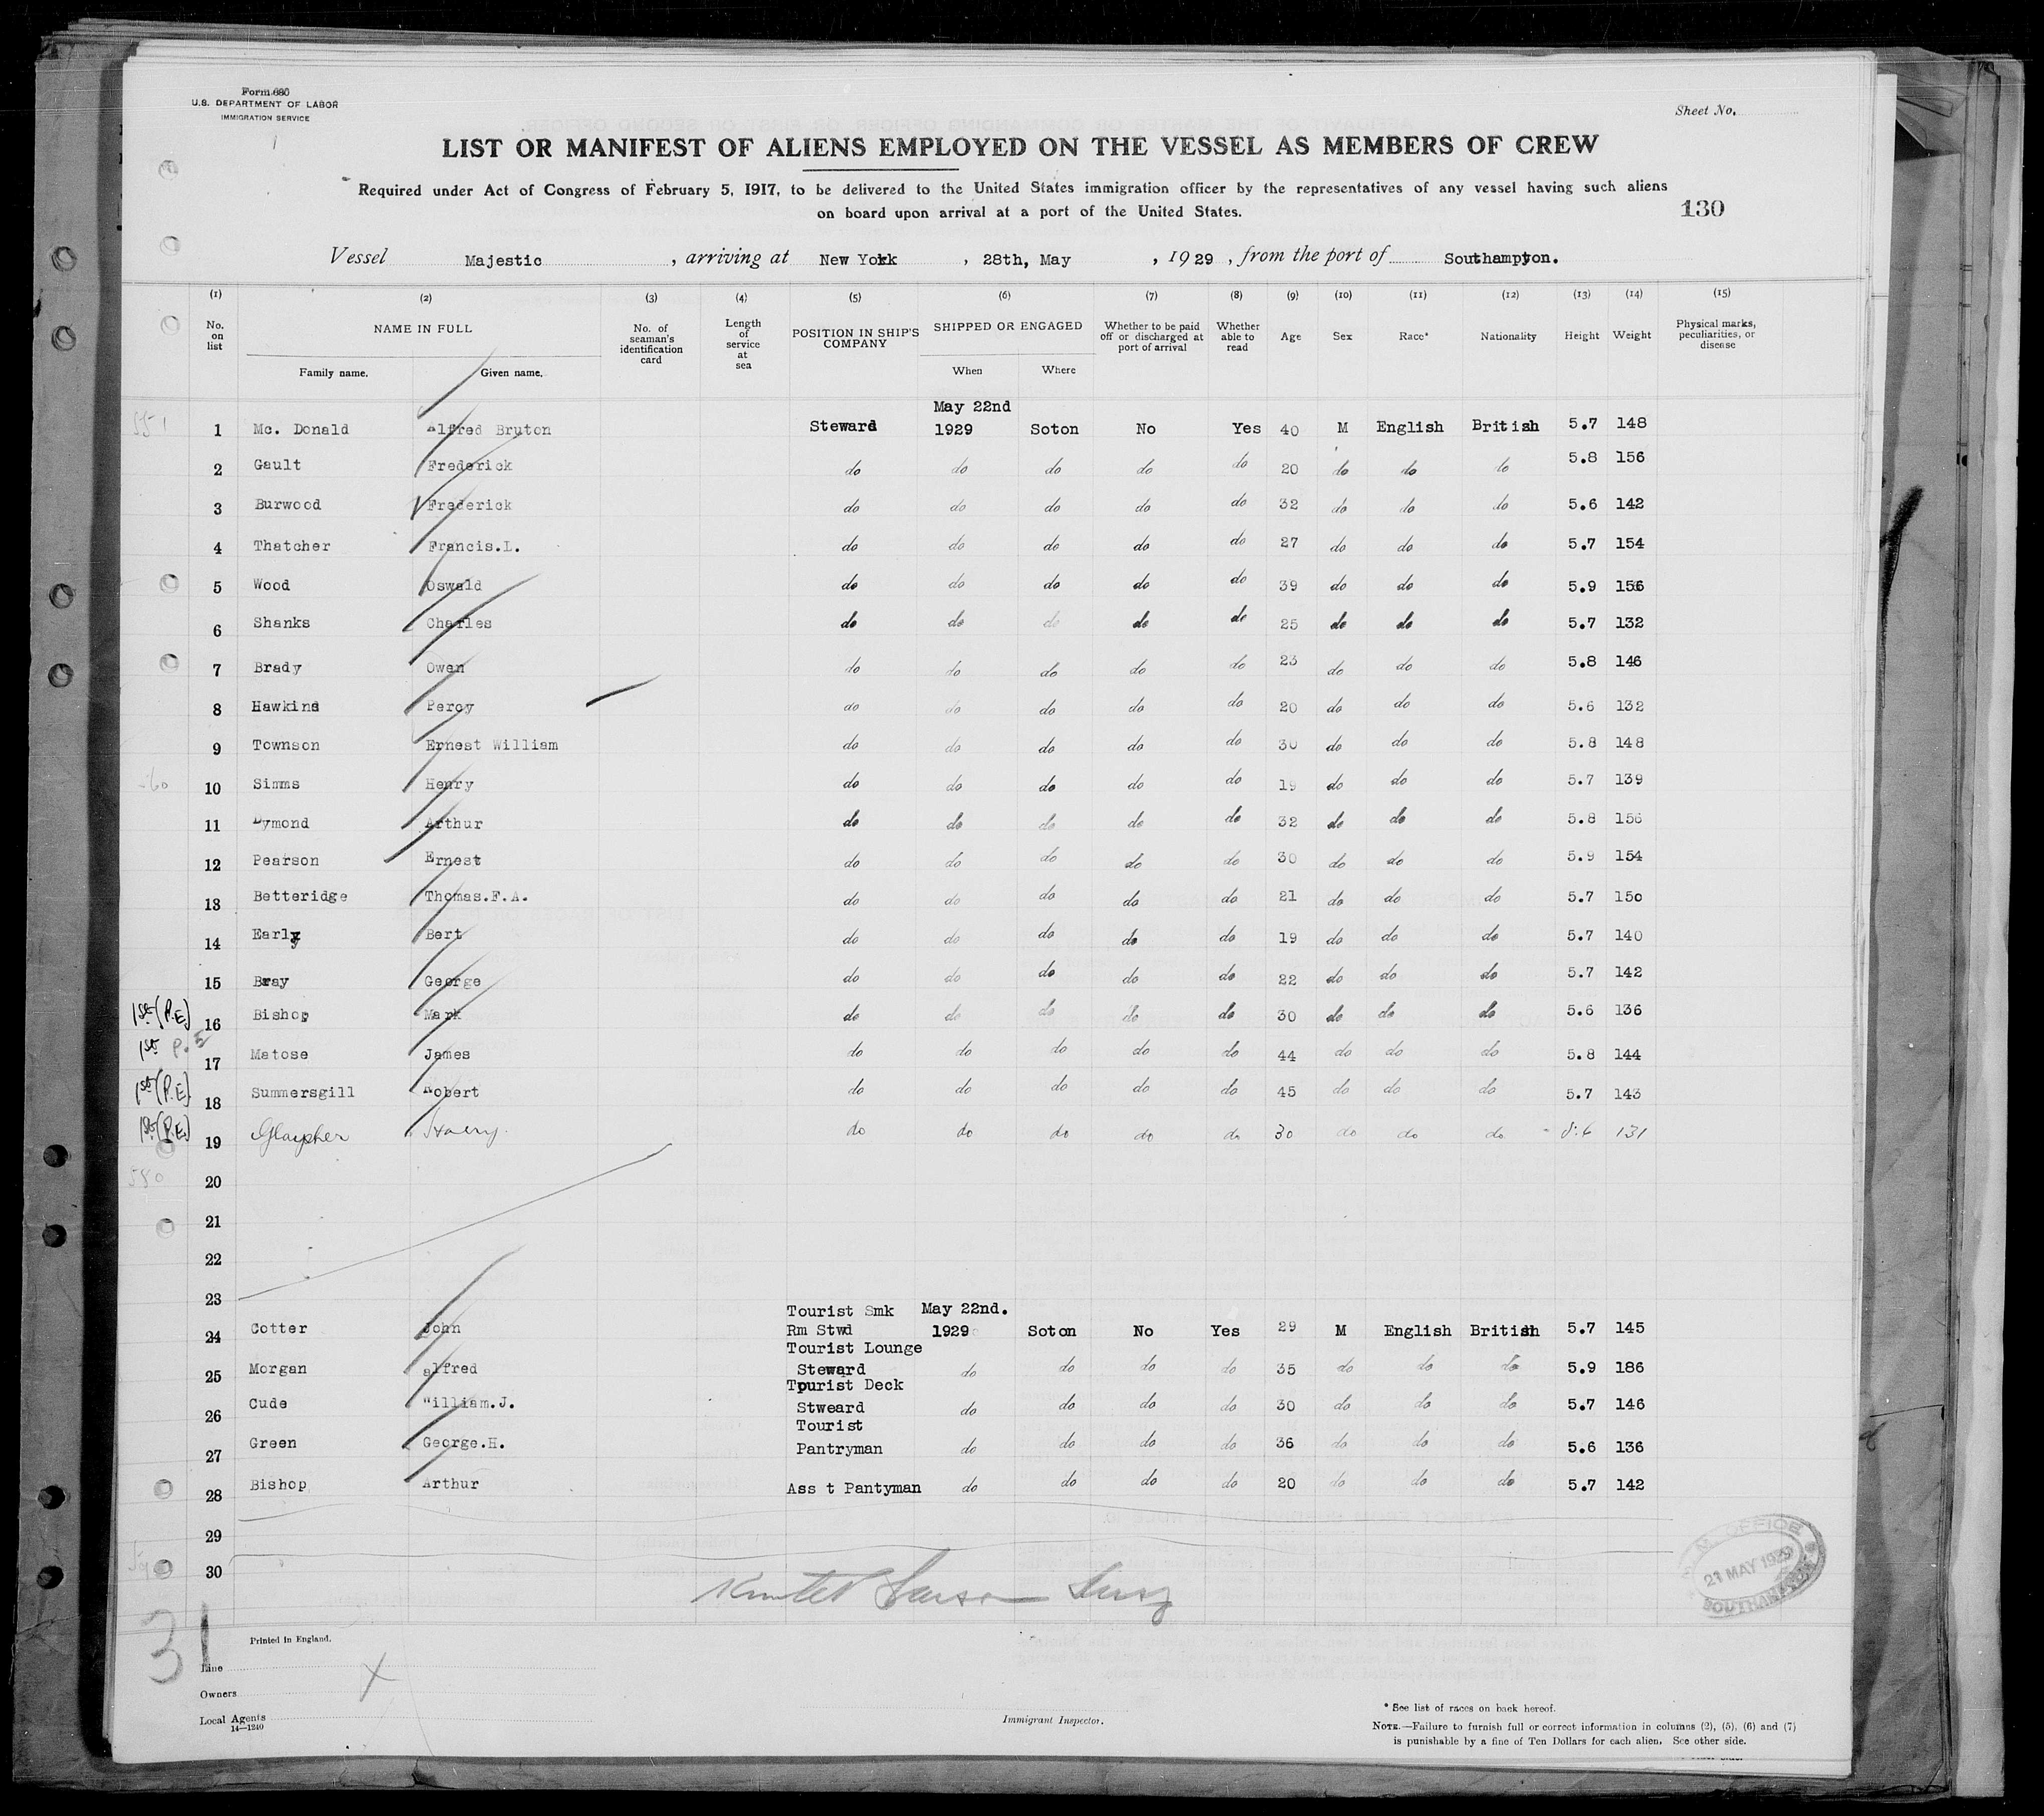 Form 680
U.S. DEPARTMENT OF LABOR
IMMIGRATION SERVICE
Sheet No.
LIST OR MANIFEST OF ALIENS EMPLOYED ON THE VESSEL AS MEMBERS OF CREW
Required under Act of Congress of February 5, 1917, to be delivered to the United States immigration officer by the representatives of any vessel having such aliens
on board upon arrival at a port of the United States.
130
Vessel Majestic , arriving at New York , 28th, May , 1929 , from the port of Southampton.
(1) (2) (3) (4) (5) (6) (7) (8) (9) (10) (11) (12) (13) (14) (15)
No. on list NAME IN FULL No. of seaman's identification card Length of service at sea POSITION IN SHIP'S COMPANY SHIPPED OR ENGAGED Whether to be paid off or discharged at port of arrival Whether able to read Age Sex Race* Nationality Height Weight Physical marks, peculiarities, or disease
Family name. Given name. When Where
May 22nd
1 Mc. Donald Alfred Bruton Steward 1929 Soton No Yes 40 M English British 5.7 148
2 Gault Frederick do do do do do 20 do do do 5.8 156
3 Burwood Frederick do do do do do 32 do do do 5.6 142
4 Thatcher Francis.L. do do do do do 27 do do do 5.7 154
5 Wood Oswald do do do do do 39 do do do 5.9 156
6 Shanks Charles do do do do do 25 do do do 5.7 132
7 Brady Owen do do do do do 23 do do do 5.8 146
8 Hawkins Percy do do do do do 20 do do do 5.6 132
9 Townson Ernest William do do do do do 30 do do do 5.8 148
10 Simms Henry do do do do do 19 do do do 5.7 139
11 Dymond Arthur do do do do do 32 do do do 5.8 156
12 Pearson Ernest do do do do do 30 do do do 5.9 154
13 Betteridge Thomas.F.A. do do do do do 21 do do do 5.7 150
14 Early Bert do do do do do 19 do do do 5.7 140
15 Bray George do do do do do 22 do do do 5.7 142
1st (P.E) 16 Bishop Mark do do do do do 30 do do do 5.6 136
1st P.E 17 Matose James do do do do do 44 do do do 5.8 144
1st (P.E) 18 Summersgill Robert do do do do do 45 do do do 5.7 143
1st (P.E.) 19 Harry do do do do do 30 do do do 5.6 131
20
21
22
23
Tourist Smk May 22nd.
24 Cotter John Rm Stwd 1929 Soton No Yes 29 M English British 5.7 145
Tourist Lounge
25 Morgan alfred Steward do do do do 35 do do do 5.9 186
Tourist Deck
26 Cude William.J. Stweard do do do do 30 do do do 5.7 146
Tourist
27 Green George.H. Pantryman do do do do 36 do do do 5.6 136
28 Bishop Arthur Ass t Pantyman do do do do 20 do do do 5.7 142
29
30
OFFICE
21 MAY 1929
SOUTHAMPTON
31
Printed in England.
Line
Owners
Local Agents
14—1240
Immigrant Inspector.
* See list of races on back hereof.
NOTE.—Failure to furnish full or correct information in columns (2), (5), (6) and (7)
is punishable by a fine of Ten Dollars for each alien. See other side.